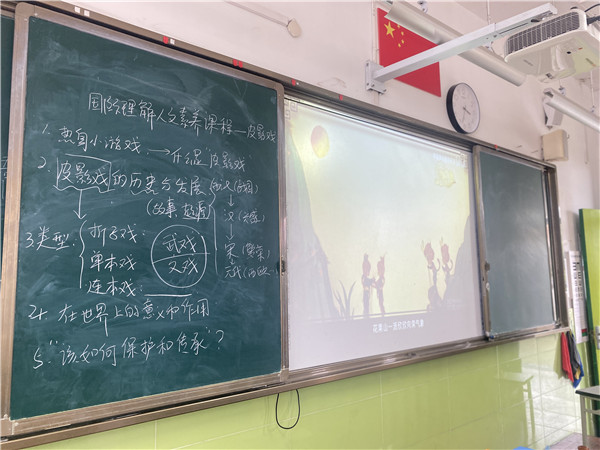 国际理解人文素养课程—皮影戏
1. 热身小游戏 → 介绍皮影戏
2. 皮影戏的历史与发展
(故事、起源)
汉(
宋(繁荣)
元代(
3. 类型:
折子戏.
单本戏
连本戏.
武戏
文戏
4. 在世界上的意义和作用
5. “该如何保护和传承”?
花果山一连伏状向清气高